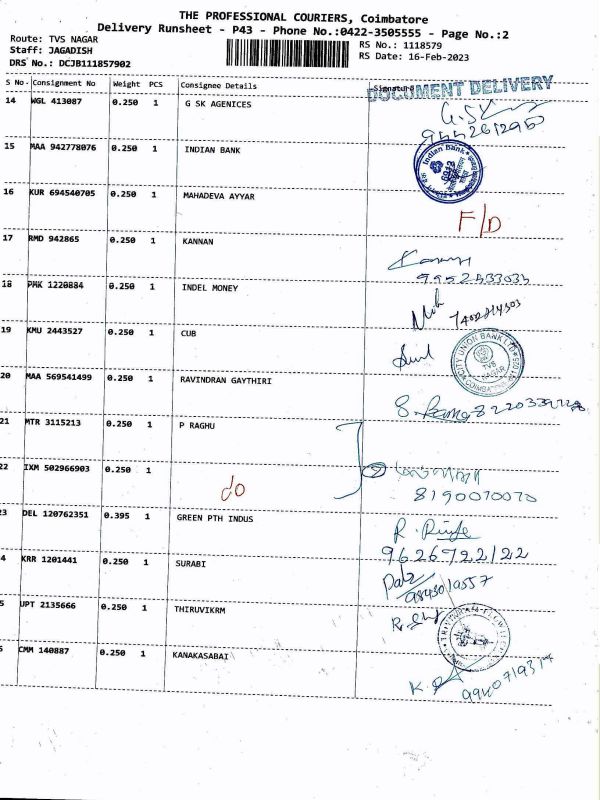 THE PROFESSIONAL COURIERS, Coimbatore
Delivery Runsheet - P43 - Phone No.:0422-3505555 - Page No.:2
Route: TVS NAGAR
Staff: JAGADISH
DRS No.: DCJB111857902
RS No.: 1118579
RS Date: 16-Feb-2023
S No Consignment No Weight PCS Consignee Details Signature
DOCUMENT DELIVERY
14 WGL 413087 0.250 1 G SK AGENICES
15 MAA 942778076 0.250 1 INDIAN BANK
Indian Bank
16 KUR 694540705 0.250 1 MAHADEVA AYYAR
F/D
17 RMD 942865 0.250 1 KANNAN
18 PMK 1220884 0.250 1 INDEL MONEY
19 KMU 2443527 0.250 1 CUB
CITY UNION BANK LTD
TVS NAGAR
20 MAA 569541499 0.250 1 RAVINDRAN GAYTHIRI
21 MTR 3115213 0.250 1 P RAGHU
22 IXM 502966903 0.250 1 do
8190070070
23 DEL 120762351 0.395 1 GREEN PTH INDUS
9626722122
4 KRR 1201441 0.250 1 SURABI
9843019557
5 UPT 2135666 0.250 1 THIRUVIKRM
CMM 140887 0.250 1 KANAKASABAI